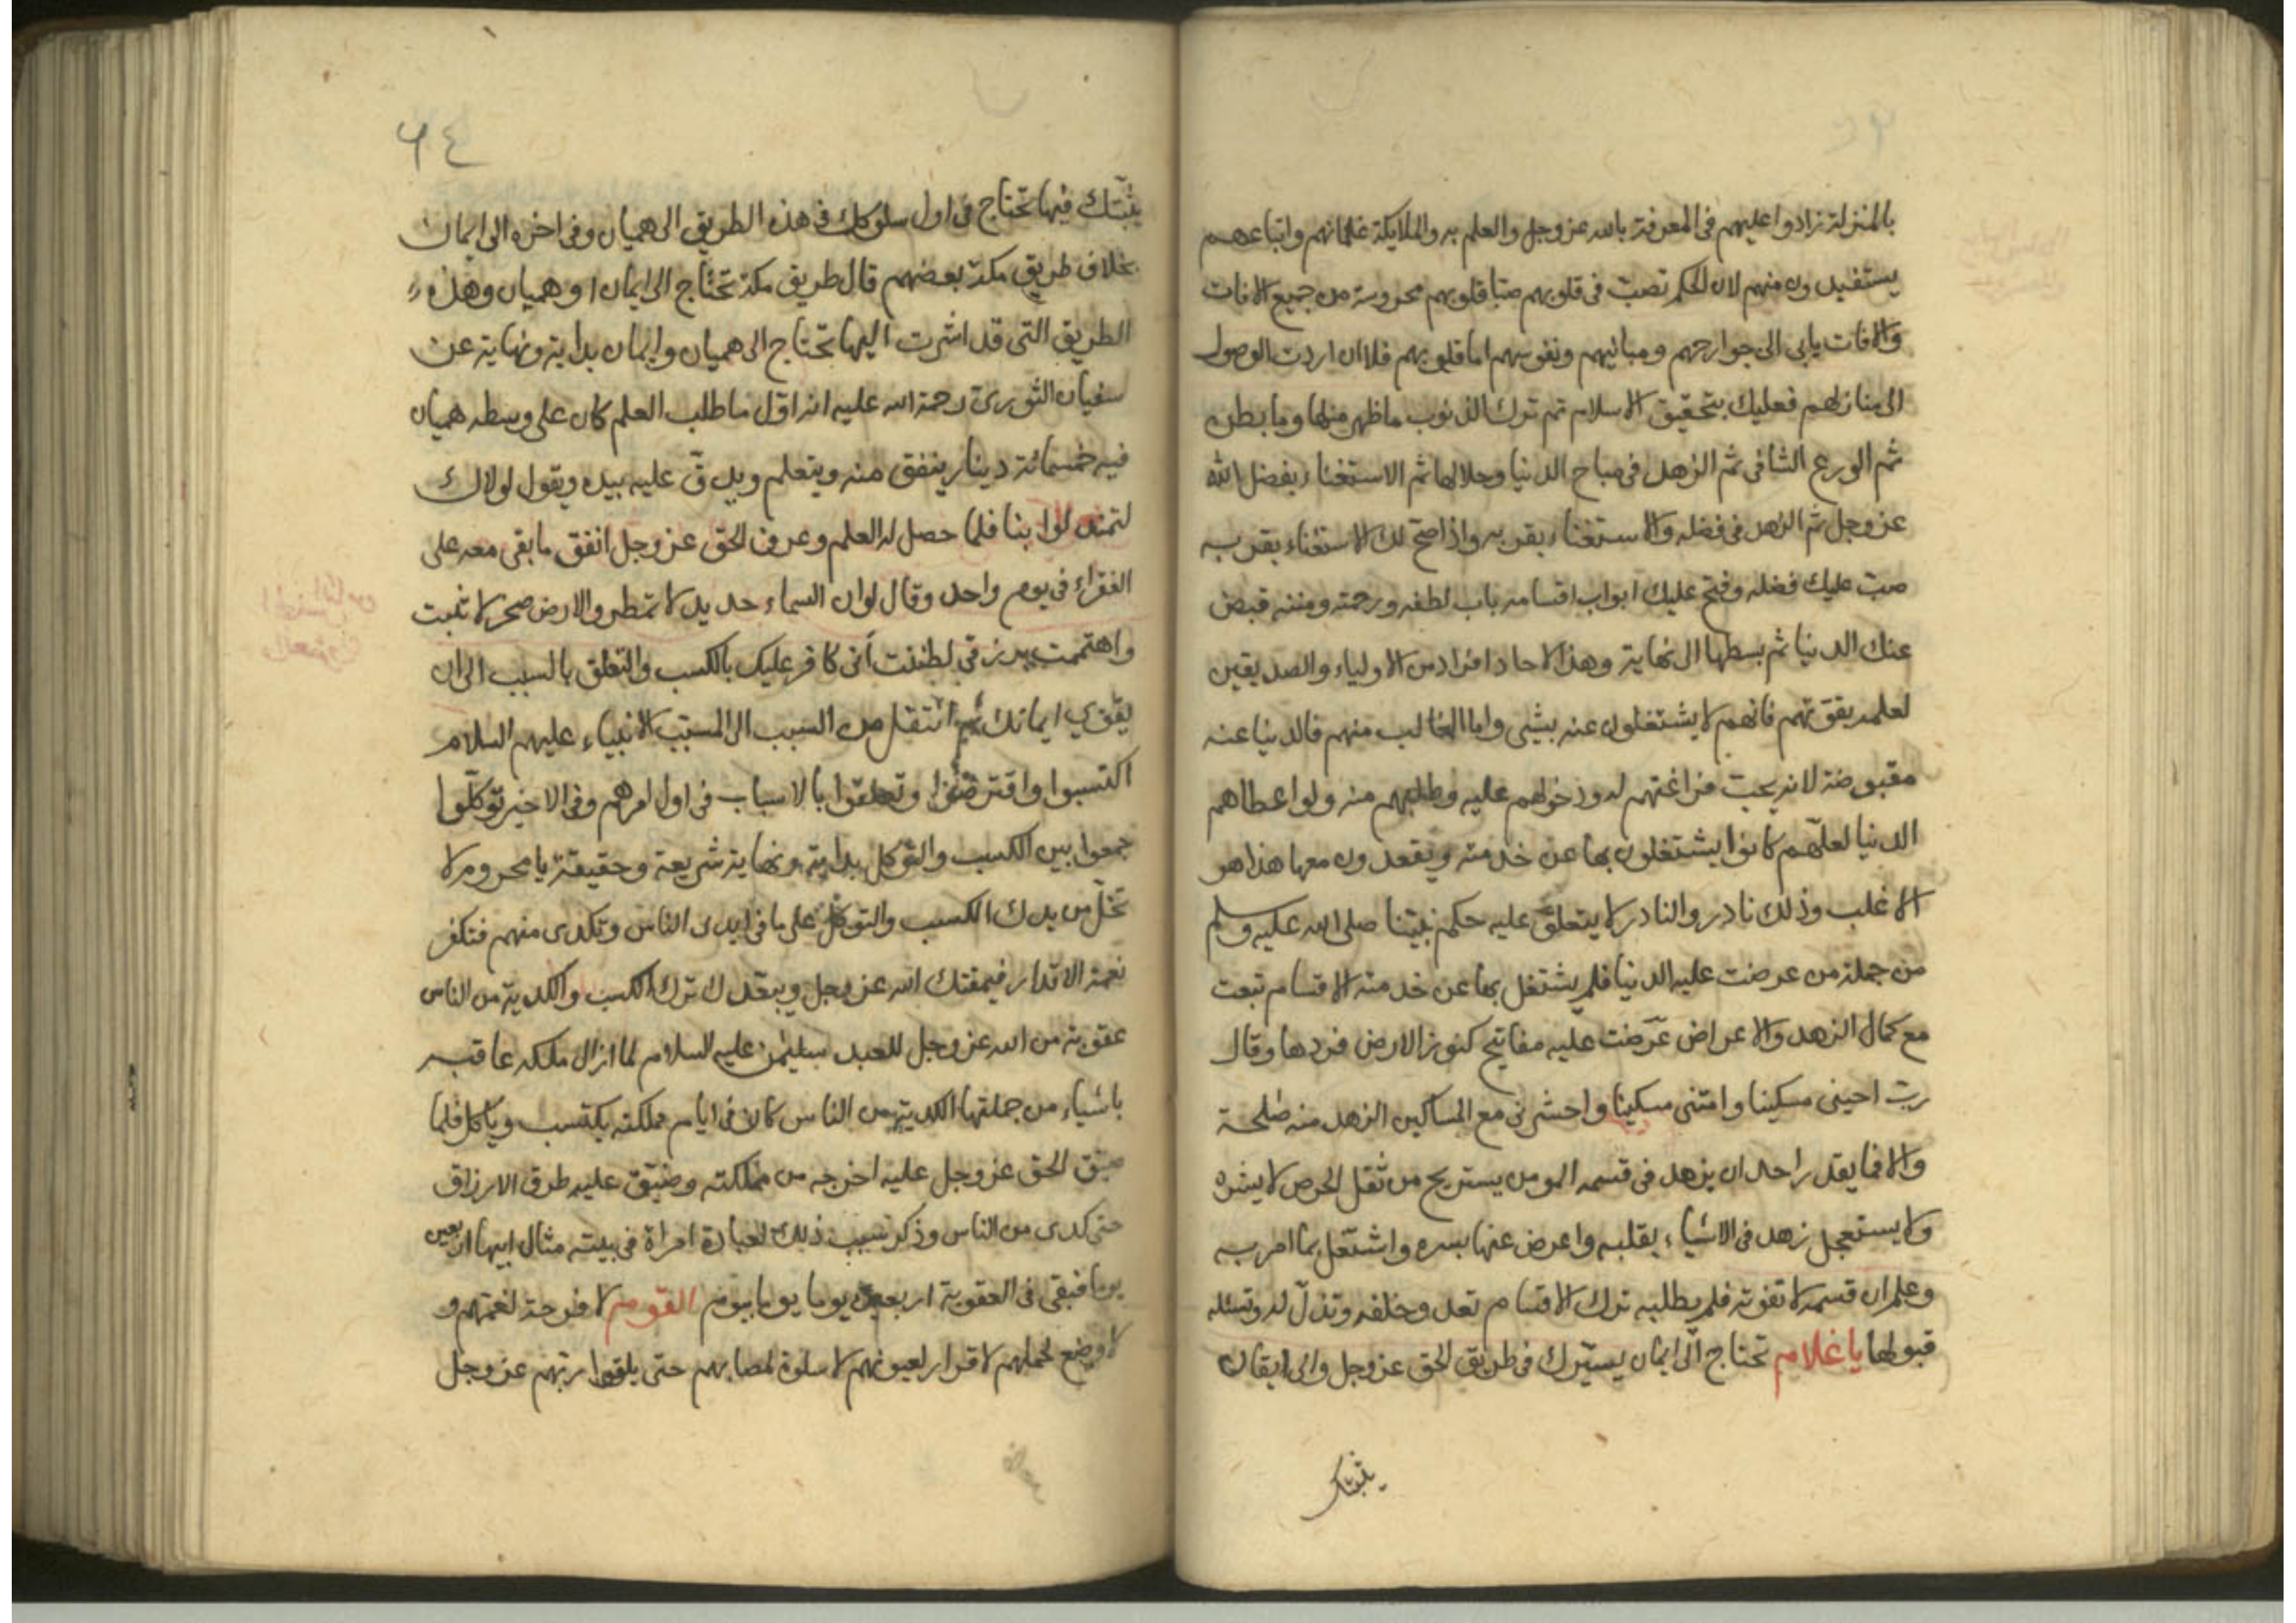 بالمنزلة زادوا عليهم فى المعرفة بالله عز وجل والعلم به والملايكة غلمانهم واتباعهم
يستفيدون منهم لان الحكم تصب فى قلوبهم صبا قلوبهم محروسة من جميع الافات
والافات ياتى الى جوارحهم ومبانيهم ونفوسهم اما قلوبهم فلا ان اردت الوصول
الى منازلهم فعليك بتحقيق الاسلام ثم ترك الذنوب ماظهر منها وما بطن
ثم الورع الشافى ثم الزهد فى مباح الدنيا وحلالها ثم الاستغناء بفضل الله
عز وجل ثم الزهد فى فضله والاستغناء بقربه واذا صح لك الاستغناء بقربه
صب عليك فضله وفتح عليك ابواب اقسامه باب لطفه ورحمته ومننه قبض
عنك الدنيا ثم بسطها الى نهاية وهذا لاحاد افراد من الاولياء والصديقين
لعلمه بقوتهم فانهم لا يشتغلون عنه بشى واما الغالب منهم فالدنيا عنه
مقبوضة لانه يحب فراغتهم له ودخولهم عليه وطلبهم منه ولو اعطاهم
الدنيا لعلهم كانوا يشتغلون بها عن خدمته ويقعدون معها هذا هو
الاغلب وذلك نادر والنادر لا يتعلق عليه حكم نبينا صلى الله عليه وسلم
من جملة من عرضت عليه الدنيا فلم يشتغل بها عن خدمته الاقسام تبعت
مع كمال الزهد والاعراض عرضت عليه مفاتيح كنوز الارض فردها وقال
رب احينى مسكينا وامتنى مسكينا واحشرنى مع المساكين الزهد منه صلحة
والا فما يقدر احد ان يزهد فى قسمه المومن يستريح من ثقل الحرص لا يشره
ولا يستعجل زهد فى الاشياء بقلبه واعرض عنها بسره واشتغل بما امر به
وعلم ان قسمه لا تفوته فلم يطلبه ترك الاقسام تعدو خلفه وتذل له وتسئله
قبولها يا غلام تحتاج الى ايمان يسيرك فى طريق الحق عز وجل والى ايقان
يثبتك
٦٤
يثبتك فيها تحتاج فى اول سلوكك فى هذه الطريق الى هميان وفى اخره الى ايمان
بخلاف طريق مكة بعضهم قال طريق مكة تحتاج الى ايمان او هميان وهذه
الطريق التى قد اشرت اليها تحتاج الى هميان وايمان بداية ونهاية عن
سفيان الثورى رحمة الله عليه انه اول ما طلب العلم كان على وسطه هميان
فيه خمسمائة دينار ينفق منه ويتعلم ويدق عليه بيده ويقول لولاك
لتمندلوا بنا فلما حصل له العلم وعرف الحق عز وجل انفق ما بقى معه على
الفقراء فى يوم واحد وقال لو ان السماء حديد لا تمطر والارض صخر لا تنبت
واهتممت برزقى لظننت أنى كافر عليك بالكسب والتعلق بالسبب الى ان
يقوي ايمانك ثم انتقل من السبب الى المسبب الانبياء عليهم السلام
اكتسبوا واقترضوا وتعلقوا بالاسباب فى اول امرهم وفى الاخير توكلوا
جمعوا بين الكسب والتوكل بداية ونهاية شريعة وحقيقة يا محروم لا
تخل من يدك الكسب والتوكل على ما فى ايدى الناس وتكدى منهم فتكفر
نعمة الاقدار فيمقتك الله عز وجل ويبعدك ترك الكسب والكدية من الناس
عقوبة من الله عز وجل للعبد سليمن عليه السلام لما ازال ملكه عاقبه
باشياء من جملتها الكدية من الناس كان فى ايام مملكته يكتسب وياكل فلما
ضيق الحق عز وجل عليه اخرجه من مملكته وضيق عليه طرق الارزاق
حتى كدى من الناس وذكر سبب ذلك لعبادة امراة فى بيته مثال ابيها اربعين
يوما فبقى فى العقوبة اربعين يوما يوما بيوم القوم لا فرحة لغمتهم و
لا وضع لحملهم لا قرار لعيونهم لا سلوة لمصابهم حتى يلقوا ربهم عز وجل